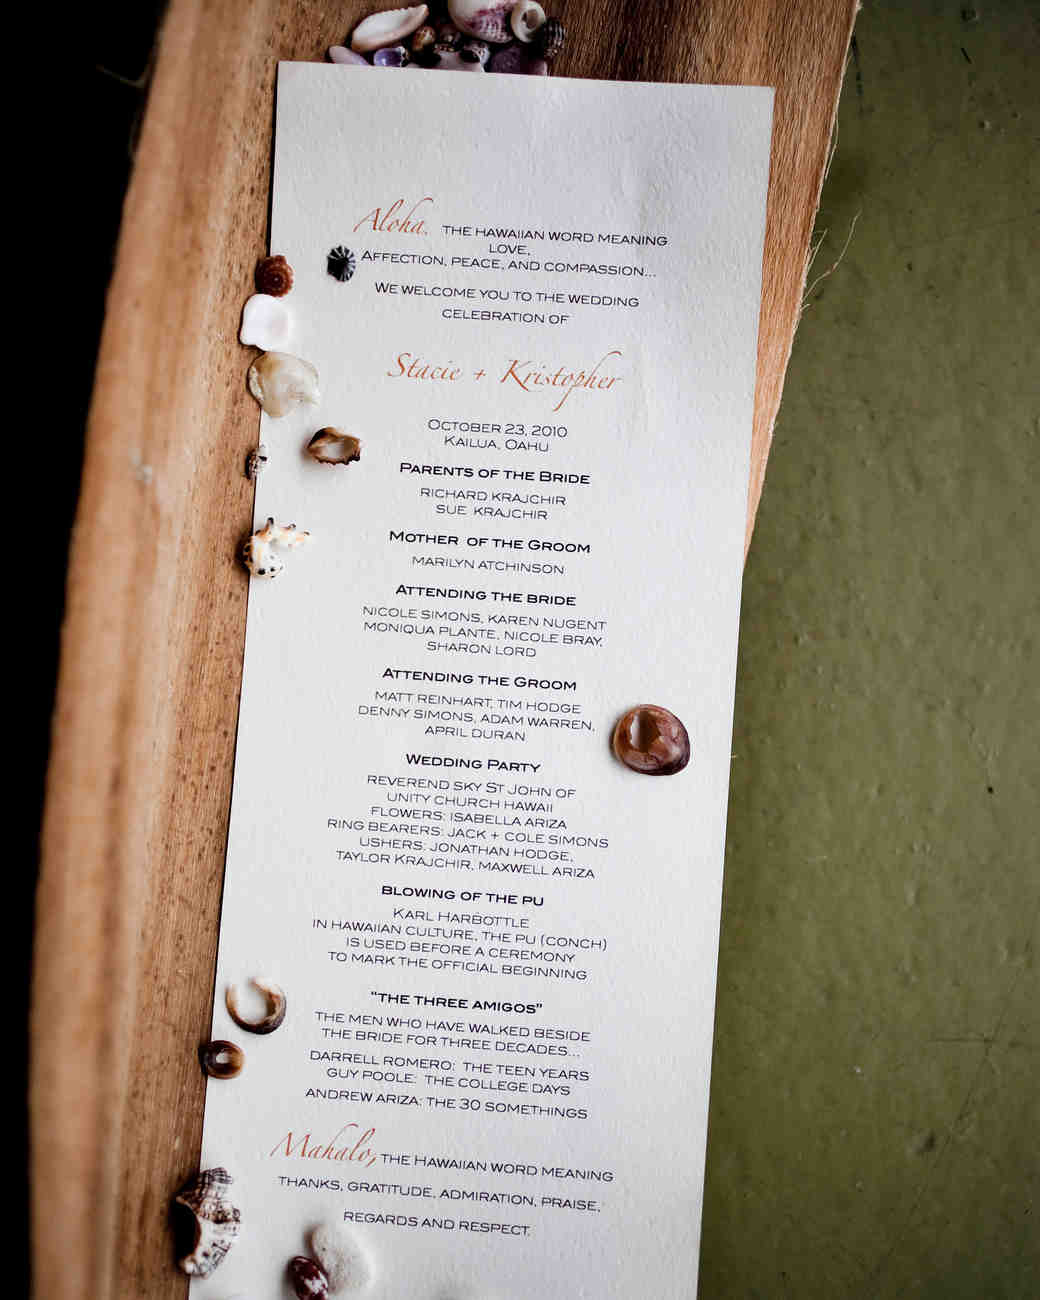 Aloha. THE HAWAIIAN WORD MEANING
LOVE,
AFFECTION, PEACE, AND COMPASSION...
WE WELCOME YOU TO THE WEDDING
CELEBRATION OF
Stacie + Kristopher
OCTOBER 23, 2010
KAILUA, OAHU
PARENTS OF THE BRIDE
RICHARD KRAJCHIR
SUE KRAJCHIR
MOTHER OF THE GROOM
MARILYN ATCHINSON
ATTENDING THE BRIDE
NICOLE SIMONS, KAREN NUGENT
MONIQUA PLANTE, NICOLE BRAY,
SHARON LORD
ATTENDING THE GROOM
MATT REINHART, TIM HODGE
DENNY SIMONS, ADAM WARREN,
APRIL DURAN
WEDDING PARTY
REVEREND SKY ST JOHN OF
UNITY CHURCH HAWAII
FLOWERS: ISABELLA ARIZA
RING BEARERS: JACK + COLE SIMONS
USHERS: JONATHAN HODGE,
TAYLOR KRAJCHIR, MAXWELL ARIZA
BLOWING OF THE PU
KARL HARBOTTLE
IN HAWAIIAN CULTURE, THE PU (CONCH)
IS USED BEFORE A CEREMONY
TO MARK THE OFFICIAL BEGINNING
"THE THREE AMIGOS"
THE MEN WHO HAVE WALKED BESIDE
THE BRIDE FOR THREE DECADES...
DARRELL ROMERO: THE TEEN YEARS
GUY POOLE: THE COLLEGE DAYS
ANDREW ARIZA: THE 30 SOMETHINGS
Mahalo, THE HAWAIIAN WORD MEANING
THANKS, GRATITUDE, ADMIRATION, PRAISE,
REGARDS AND RESPECT.